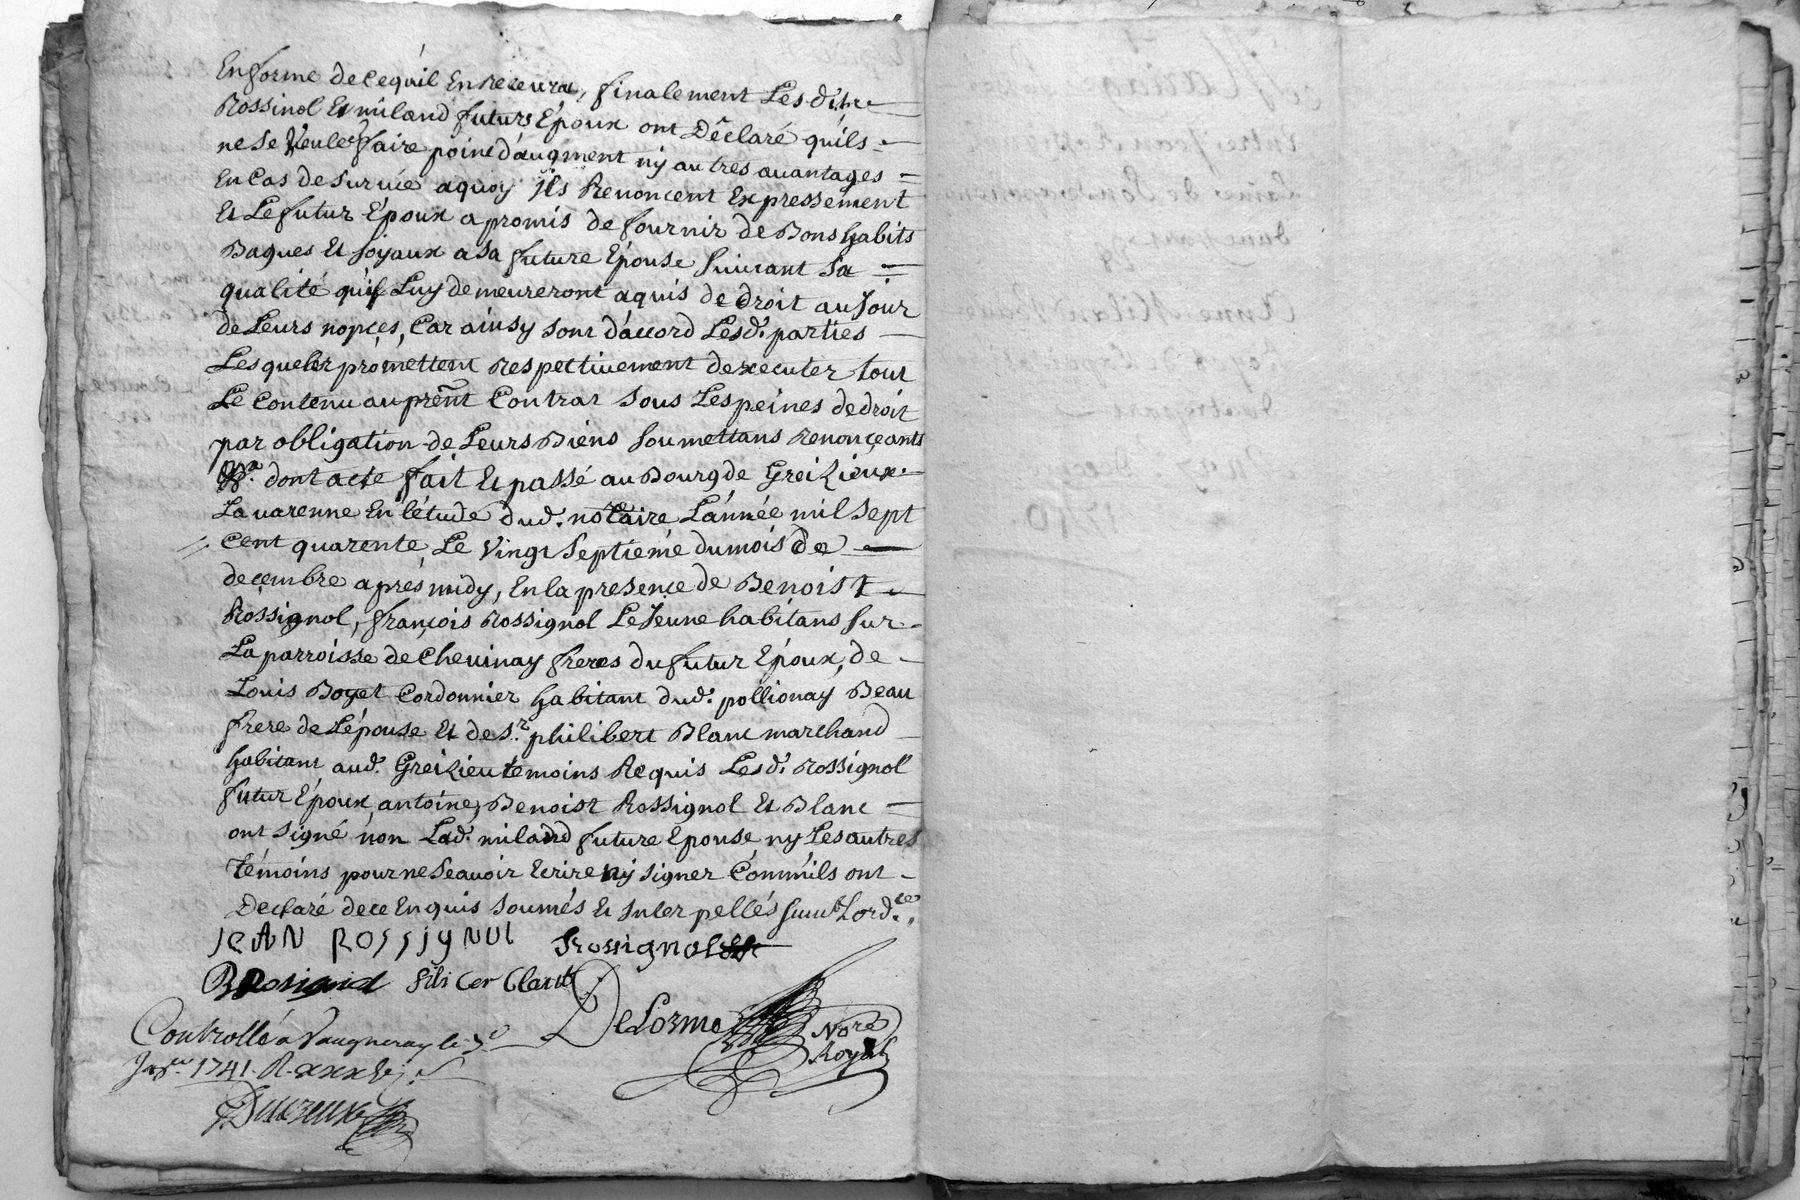 En forme de ce qu'il En Recevra, finalement Les dits
Rossinol Et miland futurs Epoux ont Déclaré qu'ils
ne se Veulet faire point d'augment ny autres avantages
En Cas de survie aquoy ils Renoncent Expressément
Et Le futur Epoux a promis de fournir de Bons habits
Bagues Et Joyaux a sa future Epouse suivant sa
qualité qui Luy demeureront aquis de droit au Jour
de Leurs nopces, Car ainsy sont d'accord Lesd. parties
Lesquelles promettent Respectivement dexecuter tout
Le Contenu au prent Contrat sous Les peines de droit
par obligation de Leurs Biens soumettans Renonçeants
dont acte fait Et passé au Bourg de Greizieux
La varenne En l'étude dud. notaire L'année mil sept
Cent quarente Le Vingt Septieme du mois de
decembre aprés midy, En la presence de Benoist
Rossignol, françois Rossignol Le Jeune habitans sur
La parroisse de Chevinay freres du futur Epoux, de
Louis Boyet Cordonnier habitant dud. pollionay Beau
frere de L'épouse Et de Sr. philibert Blanc marchand
habitant aud. Greizieu temoins Requis Lesd. Rossignol
futur Epoux, antoine, Benoist Rossignol Et Blanc
ont signé non Lad. miland future Epouse ny Les autres
témoins pour ne Sçavoir Ecrire ny signer Comm'ils ont
Declaré de ce Enquis soumés Et Interpellés suivt. L'ordce.
JEAN ROSSIGNOL Rossignol
B Rosignol
DeLorme Nore
Royal
Controllé a Vaugneray le
1741. R. xxx